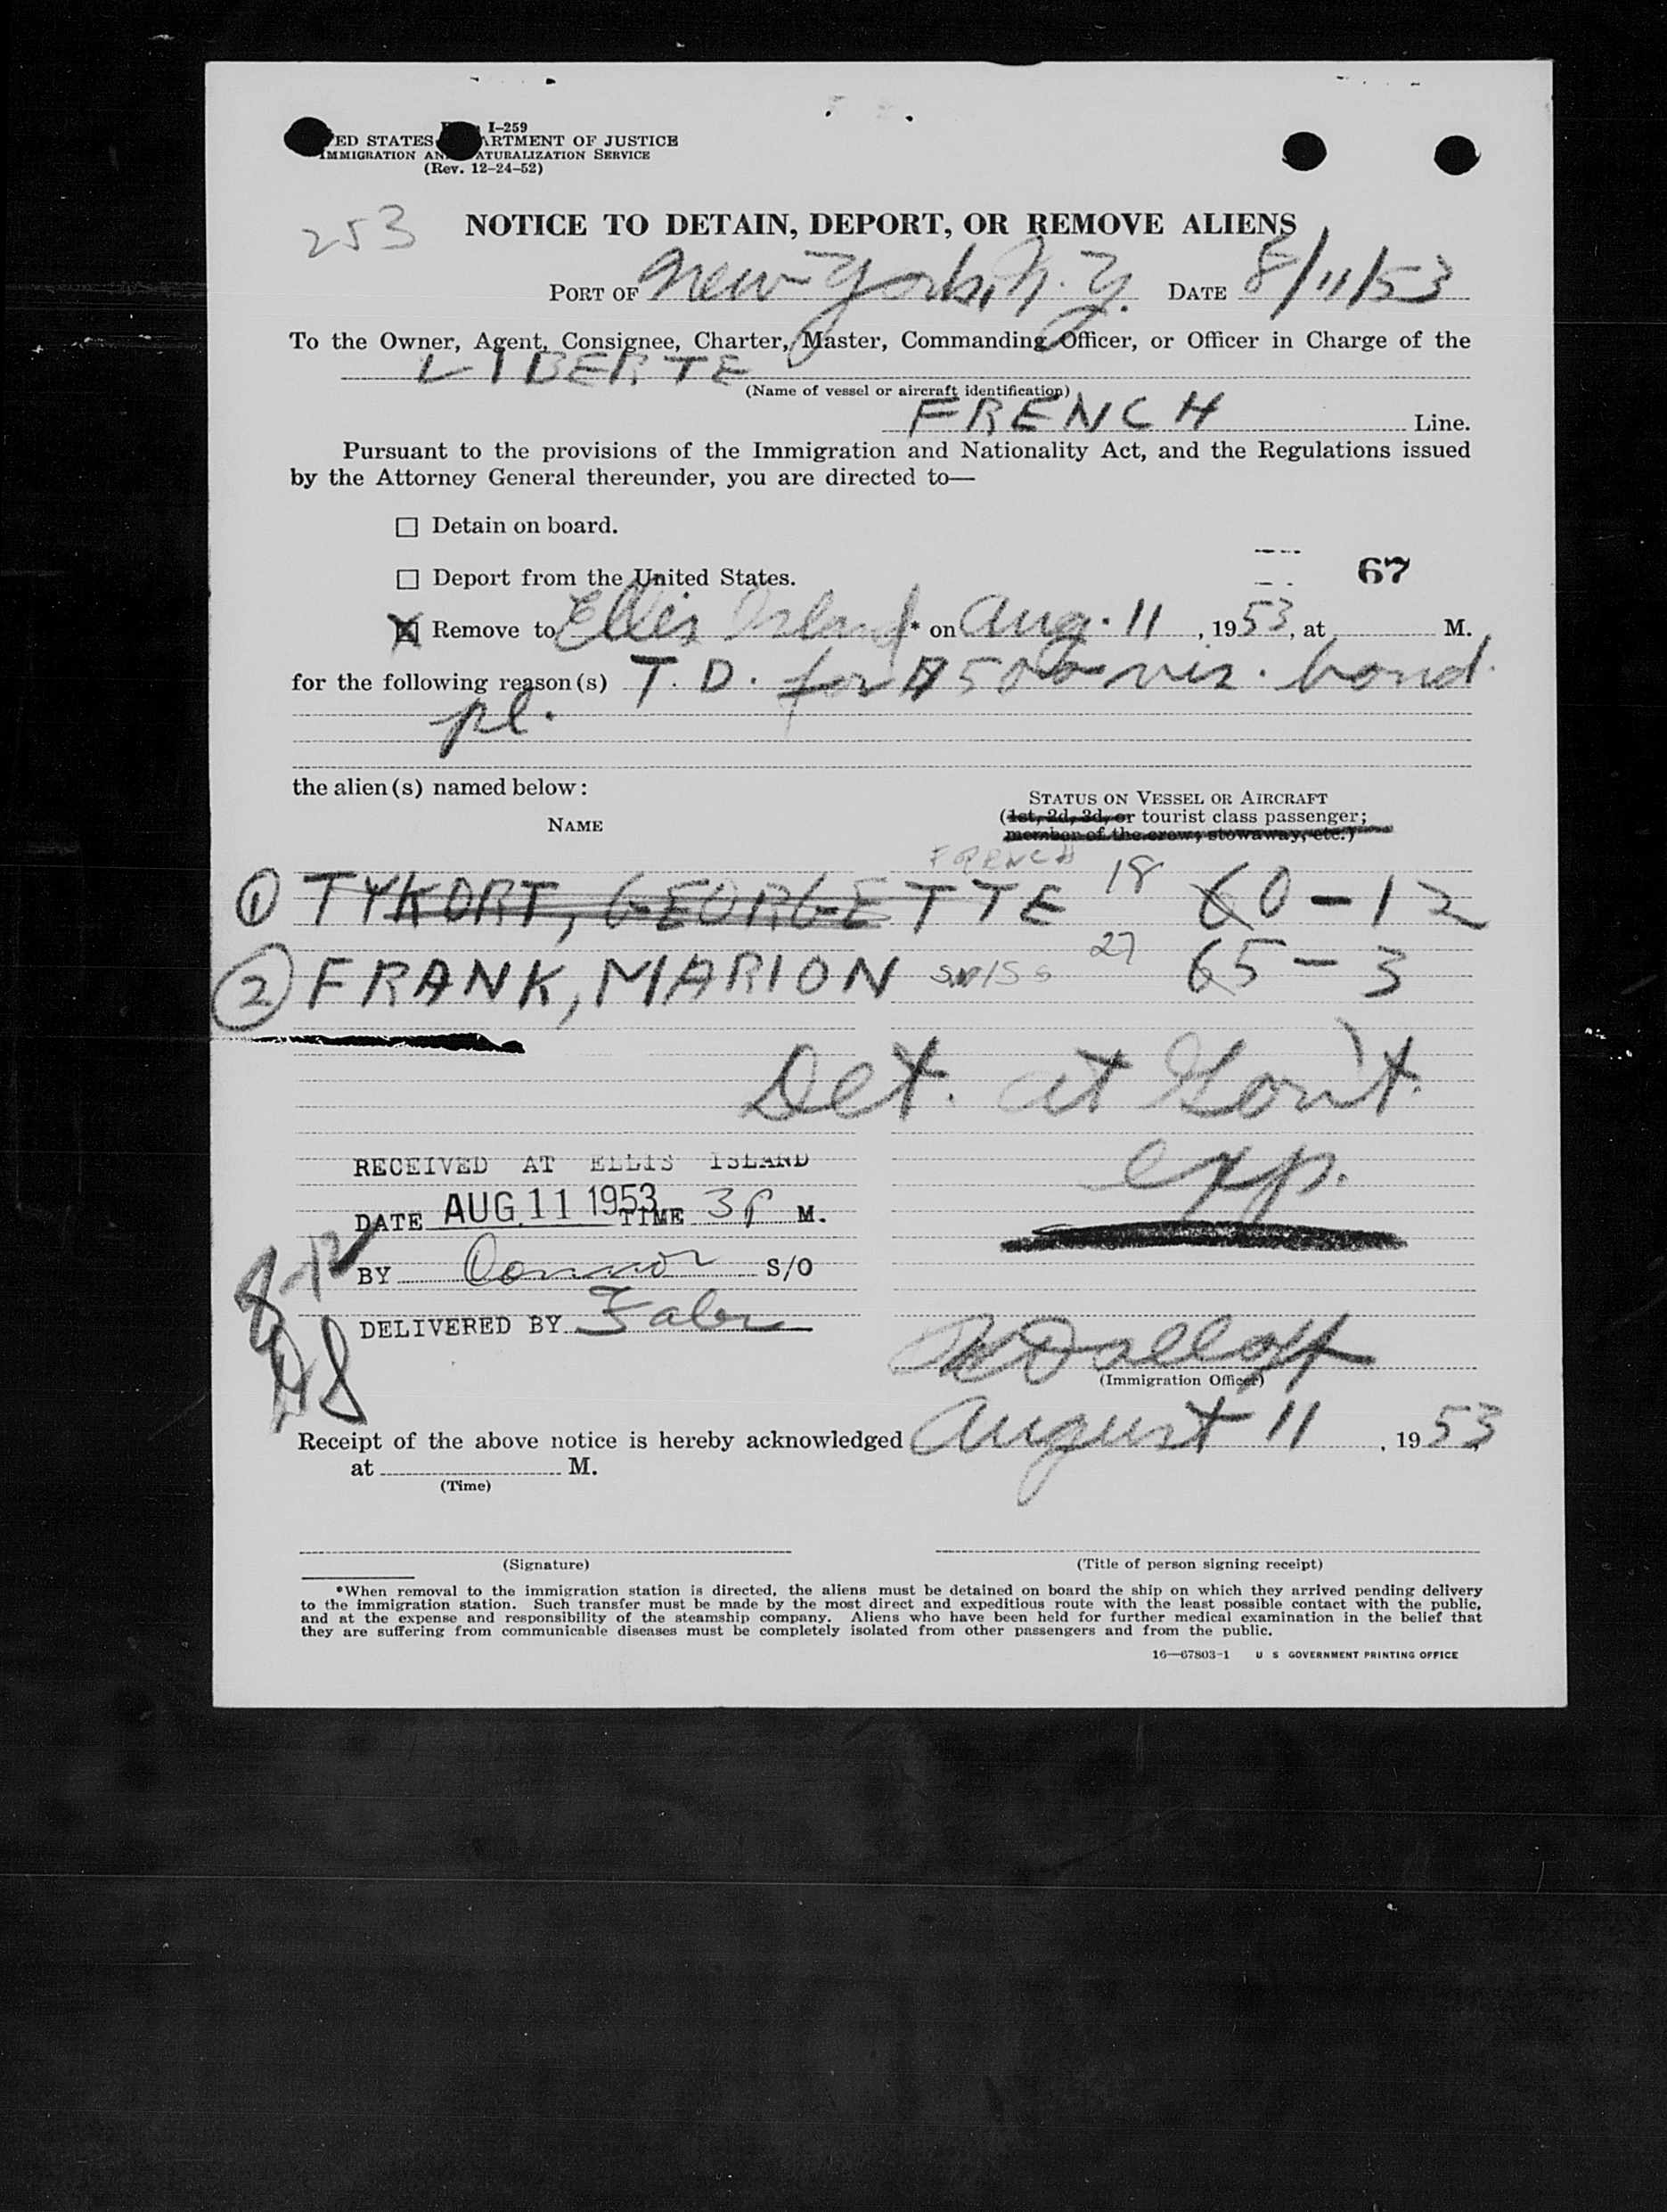 I-259
ED STATES ARTMENT OF JUSTICE
IMMIGRATION AN ATURALIZATION SERVICE
(Rev. 12-24-52)
253
NOTICE TO DETAIN, DEPORT, OR REMOVE ALIENS
PORT OF New York, N.Y. DATE 8/11/53
To the Owner, Agent, Consignee, Charter, Master, Commanding Officer, or Officer in Charge of the
LIBERTE
(Name of vessel or aircraft identification)
FRENCH Line.
Pursuant to the provisions of the Immigration and Nationality Act, and the Regulations issued
by the Attorney General thereunder, you are directed to—
☐ Detain on board.
☐ Deport from the United States.
67
☒ Remove to Ellis Island * on Aug. 11, 1953, at M.
for the following reason(s) T. D. for 500 vis. bond.
pl.
the alien(s) named below:
STATUS ON VESSEL OR AIRCRAFT
NAME
(1st, 2d, 3d, or tourist class passenger;
member of the crew; stowaway, etc.)
① TYKORT, GEORGETTE FRENCH 18 60-12
② FRANK, MARION SWISS 27 65-3
Det. at Gov't.
exp.
RECEIVED AT ELLIS ISLAND
DATE AUG 11 1953 TIME 3P M.
BY Connor S/O
DELIVERED BY Faber
8-12
(Immigration Officer)
Receipt of the above notice is hereby acknowledged August 11, 1953
at M.
(Time)
(Signature) (Title of person signing receipt)
*When removal to the immigration station is directed, the aliens must be detained on board the ship on which they arrived pending delivery
to the immigration station. Such transfer must be made by the most direct and expeditious route with the least possible contact with the public,
and at the expense and responsibility of the steamship company. Aliens who have been held for further medical examination in the belief that
they are suffering from communicable diseases must be completely isolated from other passengers and from the public.
16—67803-1 U S GOVERNMENT PRINTING OFFICE